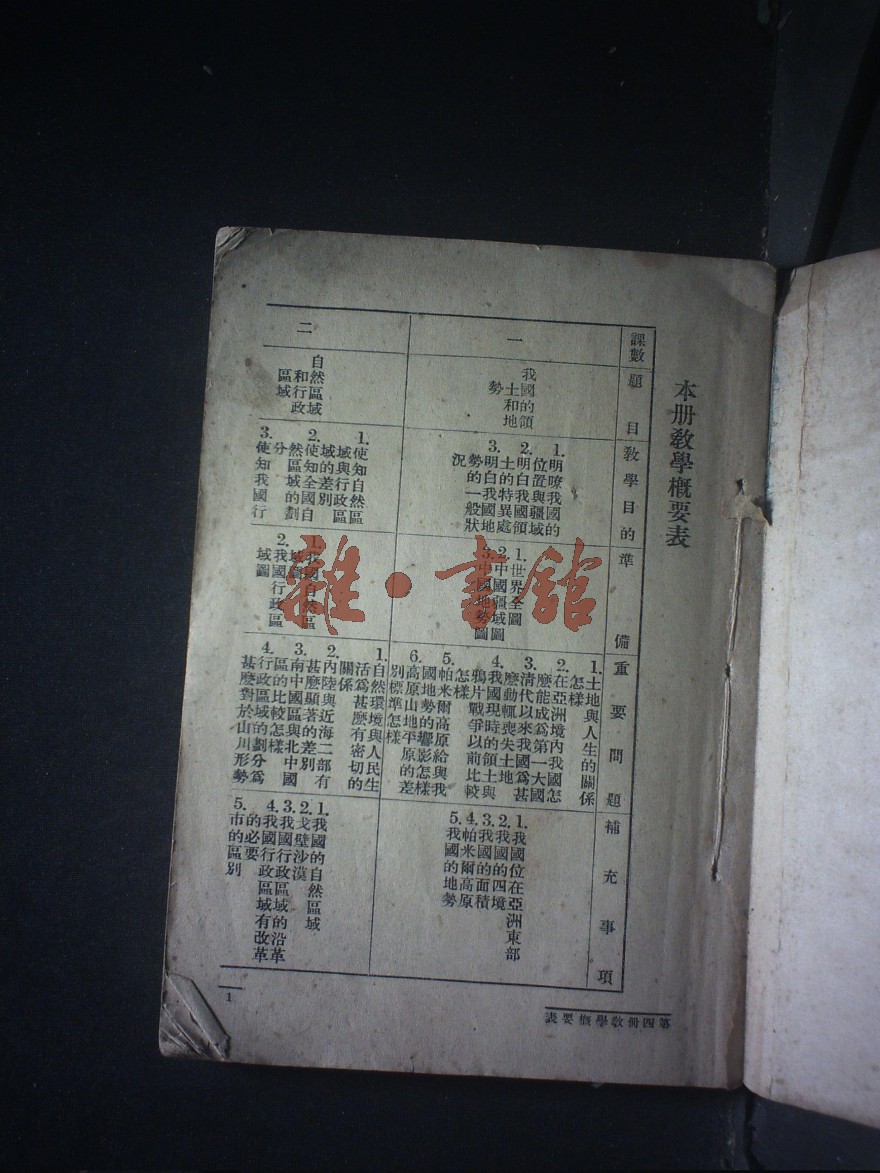 本册敎學概要表
課數
題目
敎學目的
準備
重要問題
補充事項
一
我國的領
土和地
勢
1. 明瞭我國的
位置與疆域
2. 明白我國領
土的特異處
3. 明白我國地
勢的一般狀
況
1. 世界全圖
2. 中國疆域圖
3. 中國地勢圖
1. 土地與人生的關係
怎樣
2. 在亞洲境內我國怎
麼能成爲第一大國
3. 清代以來我國爲甚
麼動輒喪失土地
4. 我國現時的領土與
鴉片戰爭以前比較
怎樣
5. 帕米爾高原給與我
國地勢的影響怎樣
6. 高原山地平原的差
別標準怎樣
1. 我國位在亞洲東部
2. 我國的四境
3. 我國的面積
4. 帕米爾高原
5. 我國的地勢
二
自然區域
和行政
區域
1. 使知自然區
域與行政區
域的差別
2. 使知全國自
然區域的劃
分
3. 使知我國行
1. 我國自然區
域圖
2. 我國行政區
域圖
1. 自然環境與人民生
活爲甚麼有密切的
關係
2. 內陸與近海二部有
甚麼顯著的差別
3. 南中國區與北中國
區的比較怎樣
4. 行政區域的劃分爲
甚麼對於山川形勢
1. 我國的自然區域
2. 戈壁沙漠
3. 我國行政區域的沿革
4. 我國行政區域有改革
的必要
5. 市的區別
第四册敎學概要表
1
雜·書館